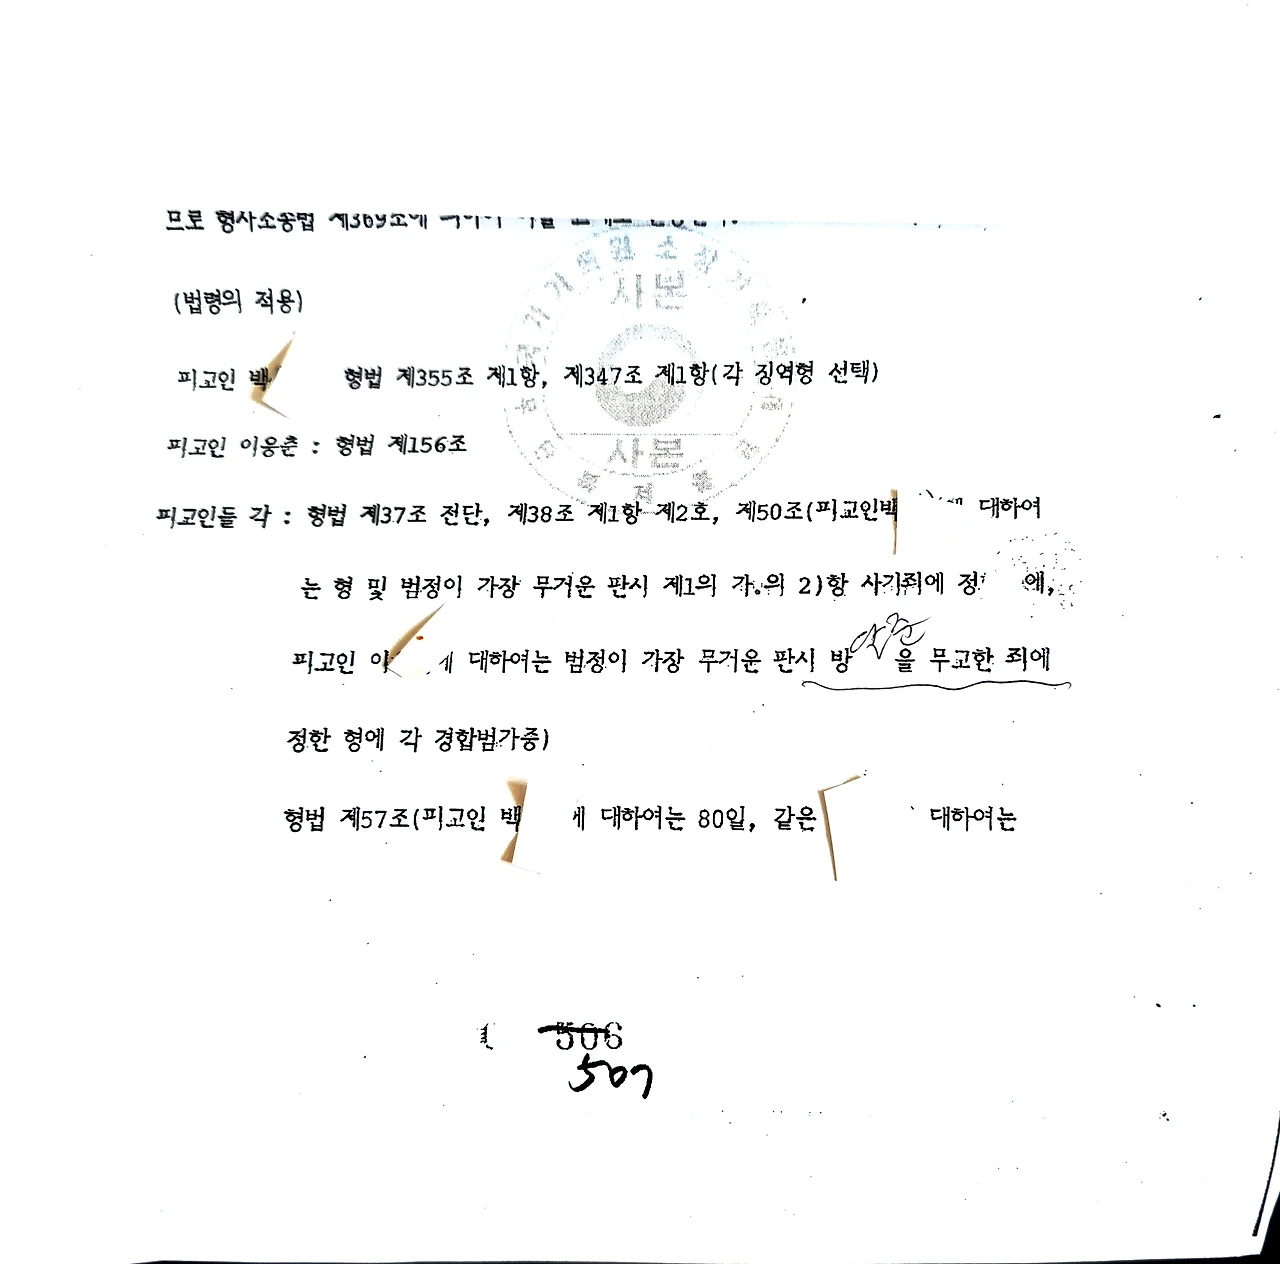 므로 형사소송법 제369조에
(법령의 적용)
피고인 백 형법 제355조 제1항, 제347조 제1항(각 징역형 선택)
피고인 이응춘 : 형법 제156조
피고인들 각 : 형법 제37조 전단, 제38조 제1항 제2호, 제50조(피고인백 대하여
는 형 및 범정이 가장 무거운 판시 제1의 가.의 2)항 사기죄에 정 에,
피고인 이 에 대하여는 범정이 가장 무거운 판시 방 을 무고한 죄에
정한 형에 각 경합범가중)
형법 제57조(피고인 백 에 대하여는 80일, 같은 대하여는
506
507
사본
사본